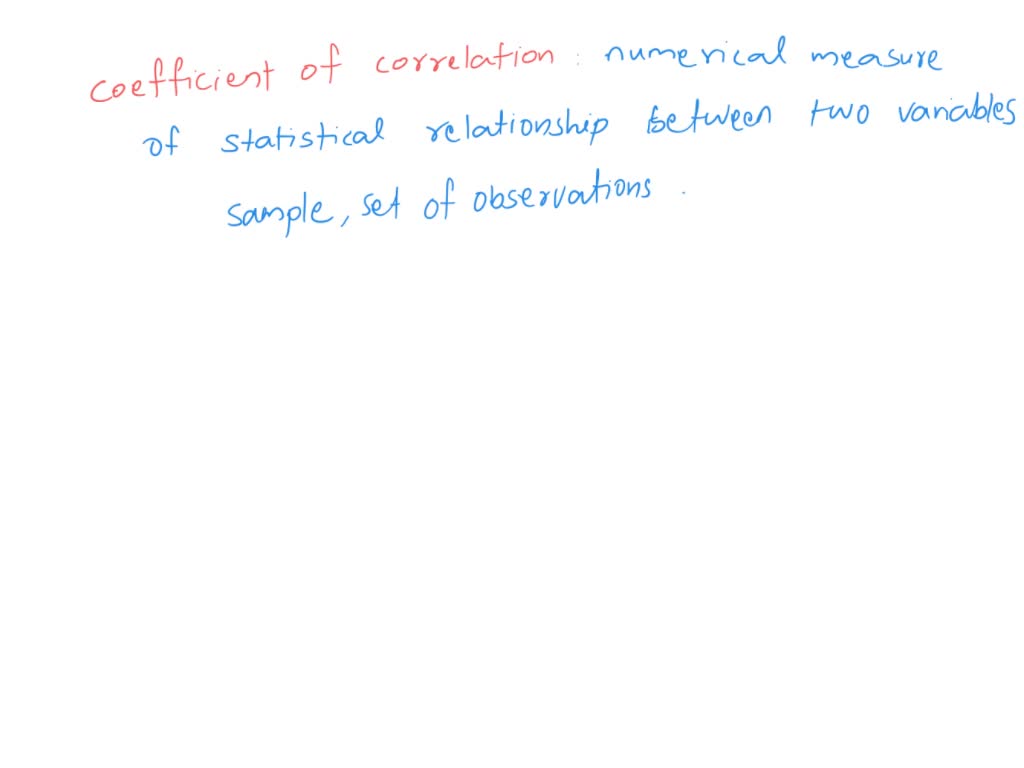 coefficient of correlation : numerical measure
of statistical relationship between two variables
sample, set of observations .